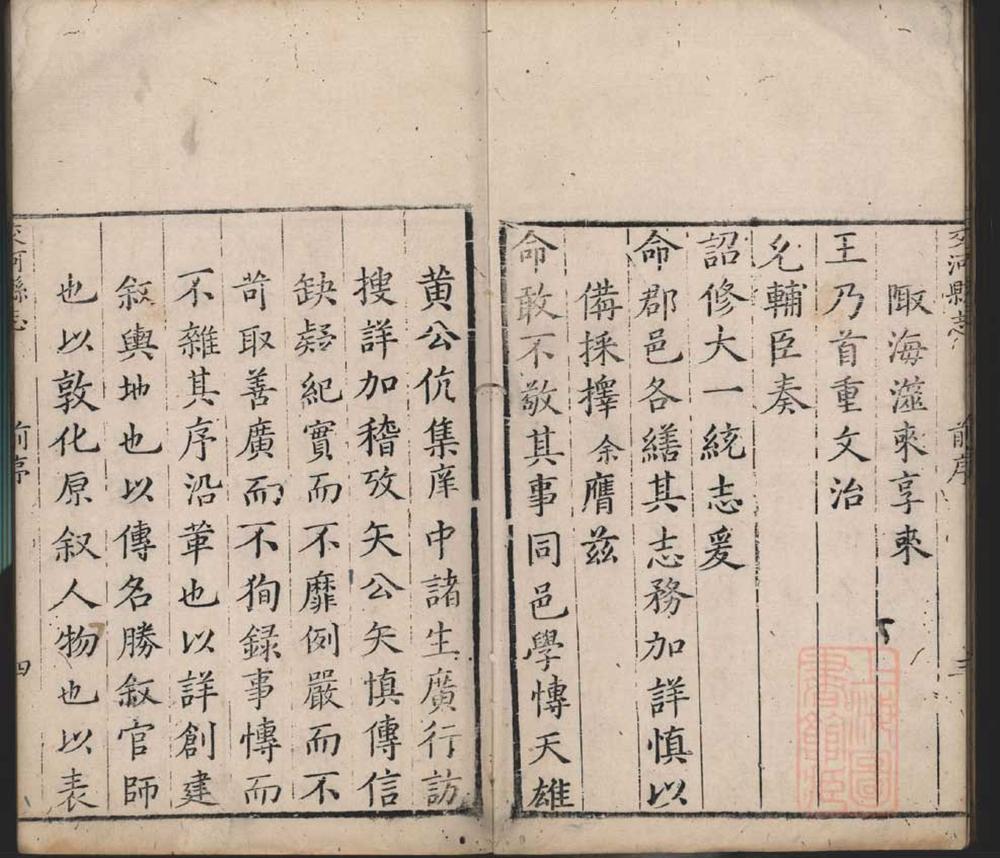 交河縣志 前序 三
陬海澨來享來
王乃首重文治
允輔臣奏
詔修大一統志爰
命郡邑各繕其志務加詳慎以
備採擇余膺茲
命敢不敬其事同邑學慱天雄
黄公伉集庠中諸生廣行訪
搜詳加稽攷矢公矢慎傳信
缺疑紀實而不靡例嚴而不
苛取善廣而不狥録事慱而
不雜其序沿革也以詳創建
敘輿地也以傳名勝敘官師
也以敦化原叙人物也以表
交河縣志 前序 四
上海圖書館藏